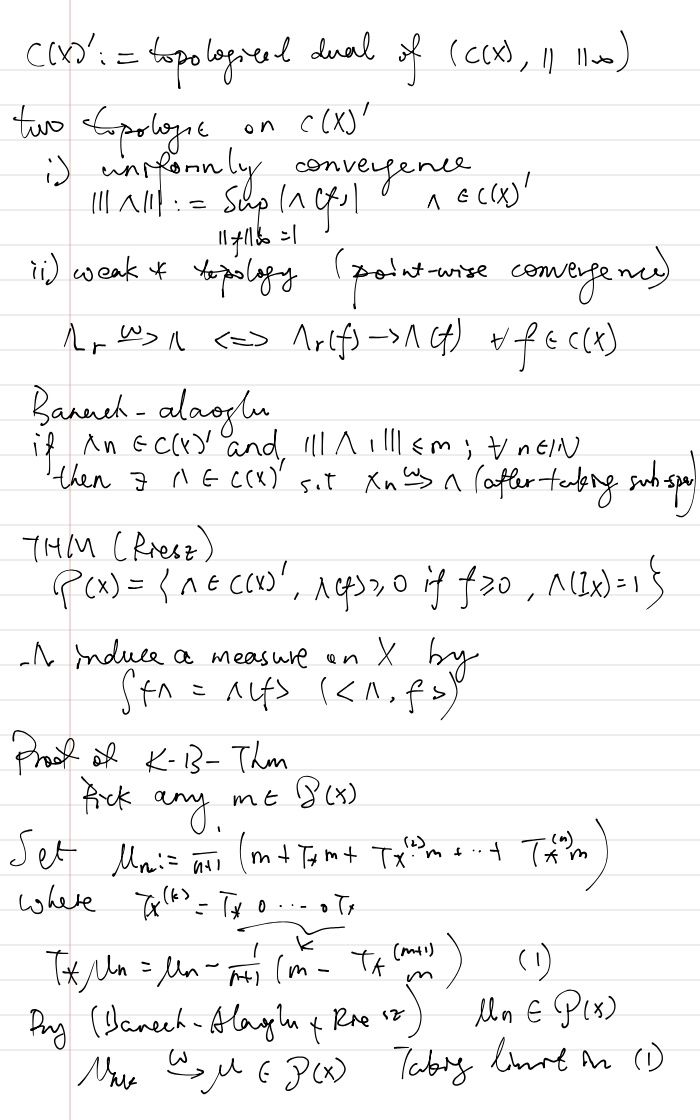 C(X)' := topological dual of (C(X), || ||∞)
two topologie on C(X)'
i) uniformly convergence
|||Λ||| := Sup |Λ(f)|   Λ ∈ C(X)'
||f||∞ = 1
ii) weak * topology (point-wise convergence)
Λr →w Λ <=> Λr(f) → Λ(f) ∀ f ∈ C(X)
Banach - alaoglu
if Λn ∈ C(X)' and ||| Λ ||| ≤ m ; ∀ n ∈ IN
then ∃ Λ ∈ C(X)' s.t Λn →w Λ (after taking sub-seq)
THM (Riesz)
P(X) = { Λ ∈ C(X)', Λ(f) ≥ 0 if f ≥ 0, Λ(1x) = 1 }
-Λ induce a measure on X by
∫fΛ = Λ(f) (<Λ, f>)
Proof of K-B-Thm
Pick any m ∈ P(X)
Set μn := 1/(n+1) (m + T* m + T*^(2) m + ... + T*^(n) m)
where T*^(k) = T* o ... o T*
k
T* μn = μn - 1/(n+1) (m - T*^(n+1) m)   (1)
By (Banach-Alaoglu + Riesz) μn ∈ P(X)
μnk →w μ ∈ P(X) Taking limit in (1)